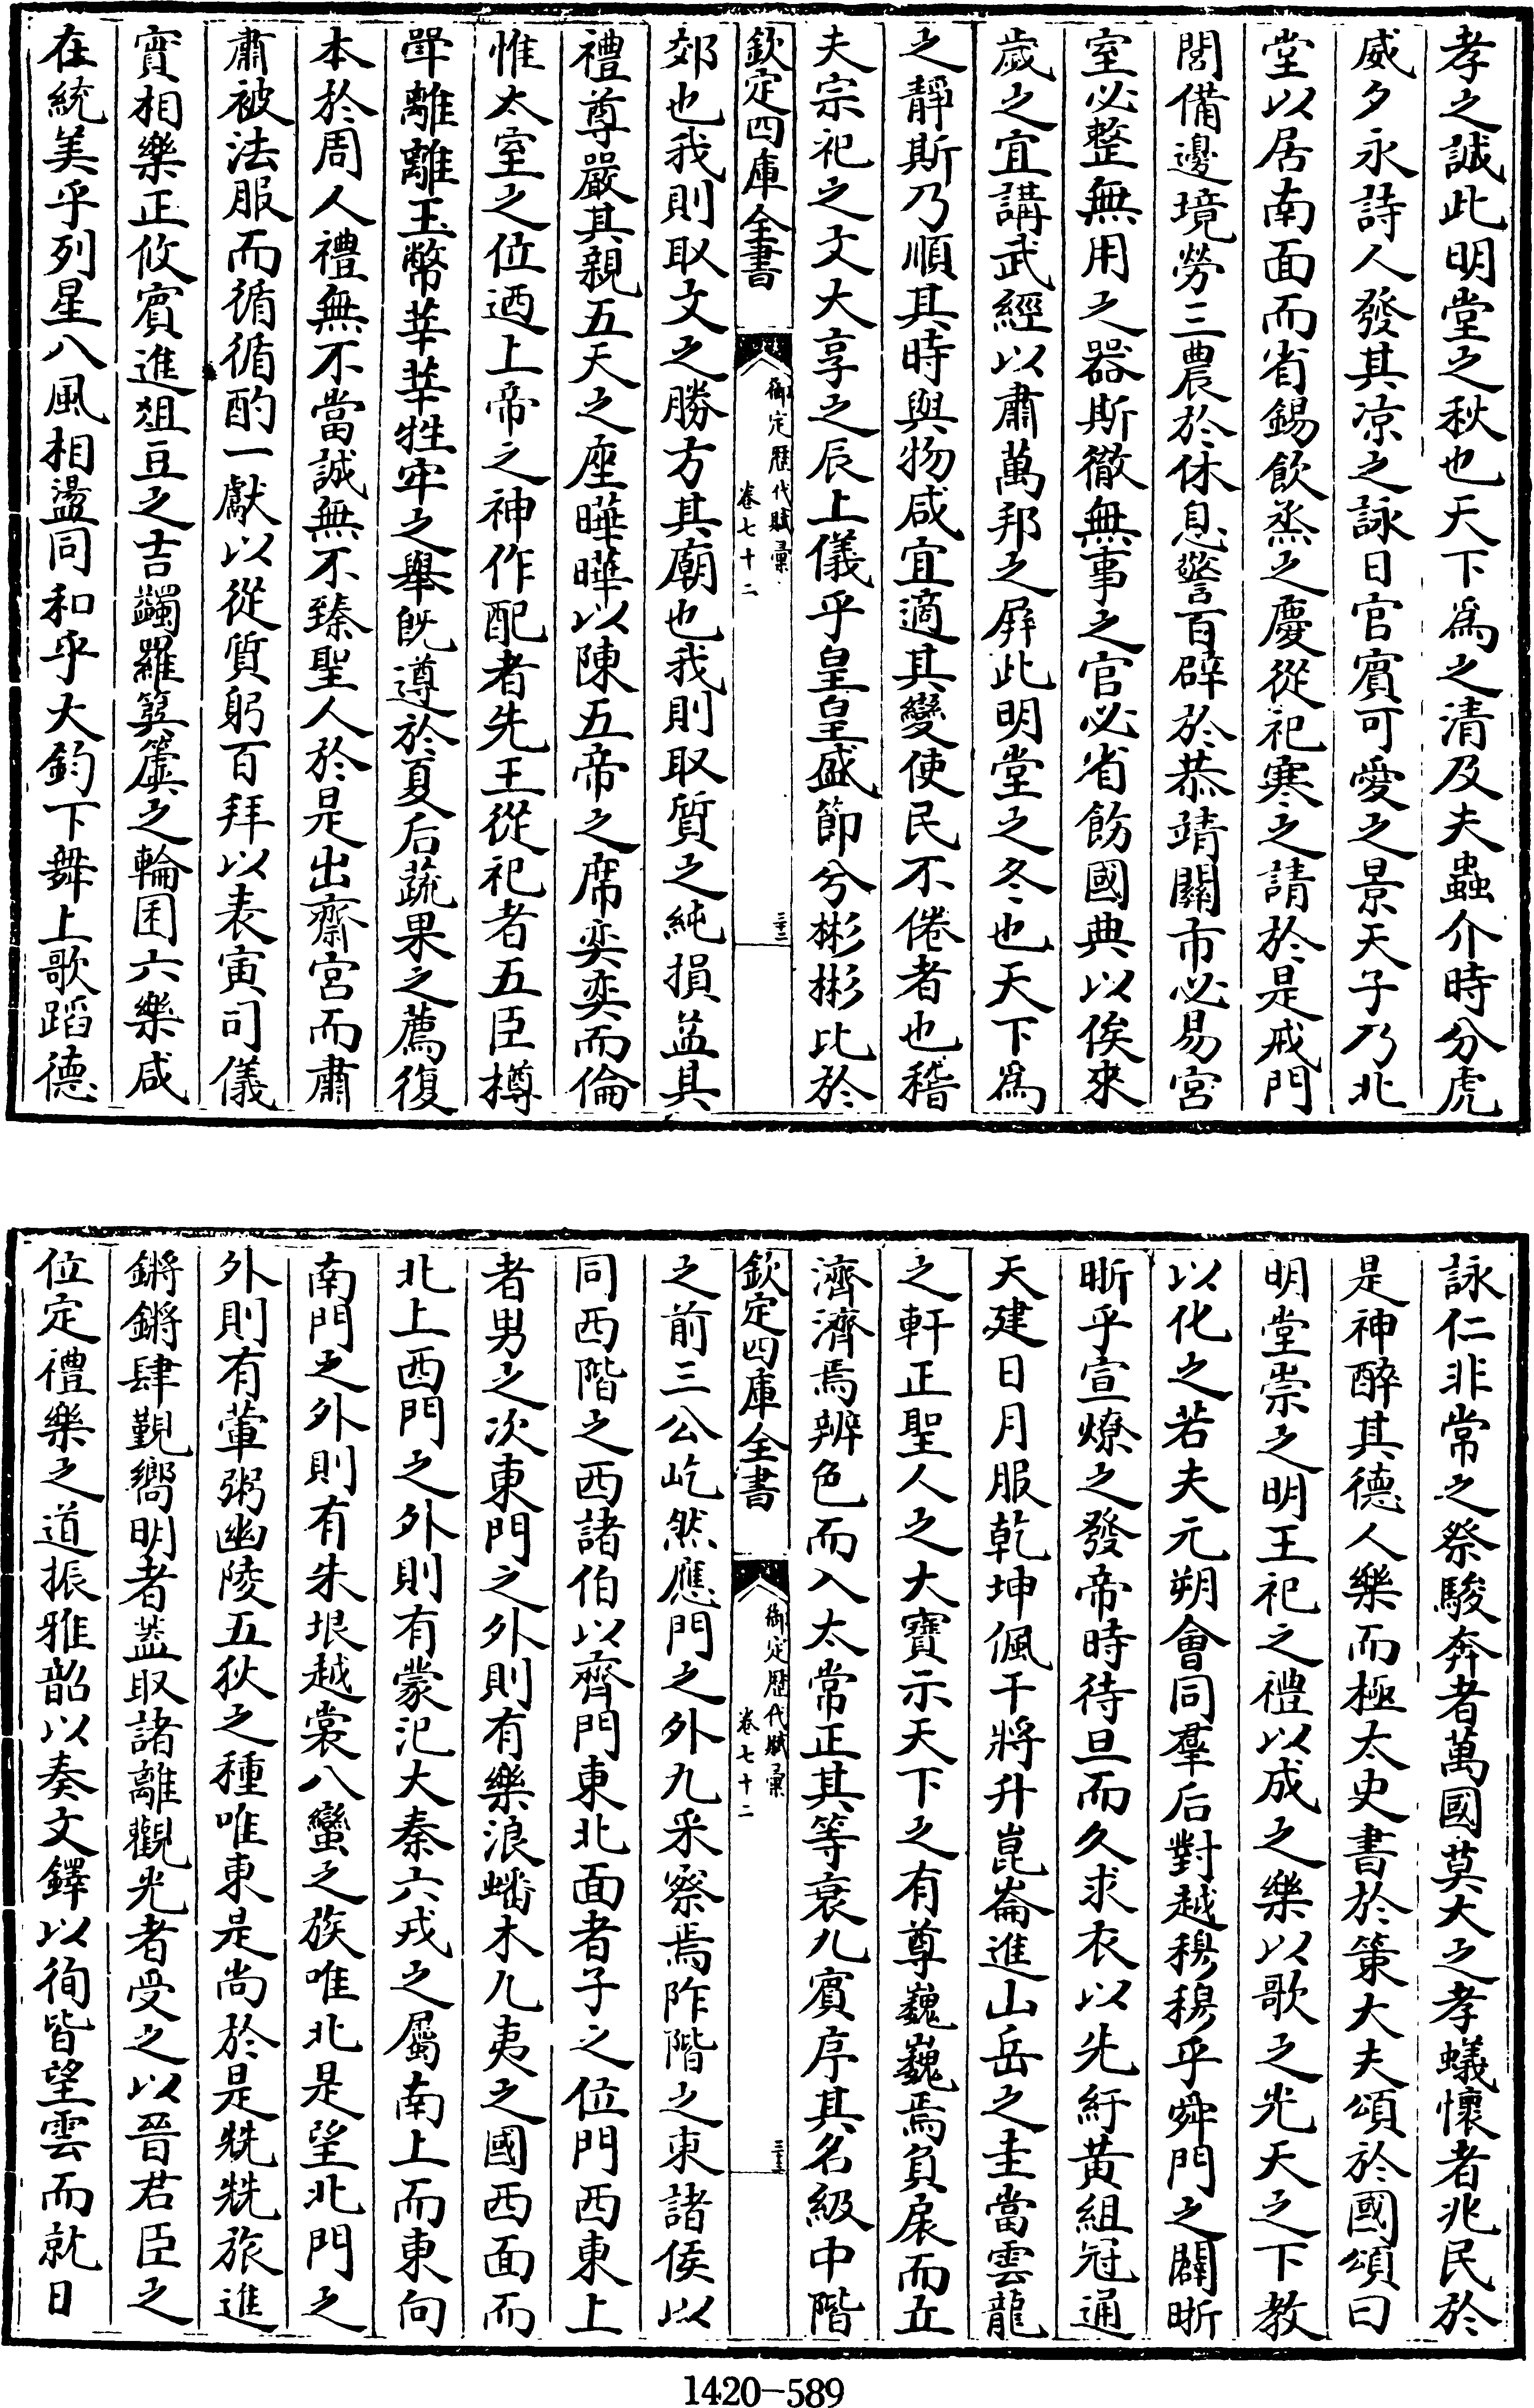 孝之誠此明堂之秋也天下爲之清及夫蟲介時分虎
威夕永詩人發其凉之詠日官賓可愛之景天子乃北
堂以居南面而省錫飲烝之慶從祀寒之請於是戒門
閭備邊境勞三農於休息警百辟於恭靖關市必易宮
室必整無用之器斯徹無事之官必省飭國典以俟來
歲之宜講武經以肅萬邦之屏此明堂之冬也天下爲
之靜斯乃順其時與物咸宜適其變使民不倦者也稽
夫宗祀之文大享之辰上儀乎皇皇盛節兮彬彬比於
欽定四庫全書
御定歷代賦彙
卷七十二
三十二
郊也我則取文之勝方其廟也我則取質之純損益其
禮尊嚴其親五天之座曄曄以陳五帝之席奕奕而倫
惟太室之位迺上帝之神作配者先王從祀者五臣樽
斝離離玉幣莘莘牲牢之舉旣遵於夏后蔬果之薦復
本於周人禮無不當誠無不臻聖人於是出齋宮而肅
肅被法服而循循酌一獻以從質躬百拜以表寅司儀
實相樂正攸賓進俎豆之吉蠲羅簨簴之輪囷六樂咸
在統美乎列星八風相盪同和乎大鈞下舞上歌蹈德
詠仁非常之祭駿奔者萬國莫大之孝蟻懷者兆民於
是神醉其德人樂而極太史書於策大夫頌於國頌曰
明堂崇之明王祀之禮以成之樂以歌之光天之下教
以化之若夫元朔會同羣后對越穆穆乎舜門之闢晰
晰乎宣燎之發帝時待旦而久求衣以先紆黃組冠通
天建日月服乾坤佩干將升崑崙進山岳之圭當雲龍
之軒正聖人之大寶示天下之有尊巍巍焉負扆而立
濟濟焉辨色而入太常正其等衰九賓序其名級中階
欽定四庫全書
御定歷代賦彙
卷七十二
三十三
之前三公屹然應門之外九采察焉阼階之東諸侯以
同西階之西諸伯以齊門東北面者子之位門西東上
者男之次東門之外則有樂浪蟠木九夷之國西面而
北上西門之外則有蒙汜大秦六戎之屬南上而東向
南門之外則有朱垠越裳八蠻之族唯北是望北門之
外則有葷粥幽陵五狄之種唯東是尚於是兟兟旅進
鏘鏘肆覲嚮明者蓋取諸離觀光者受之以晉君臣之
位定禮樂之道振雅韶以奏文鐸以徇皆望雲而就日
1420-589